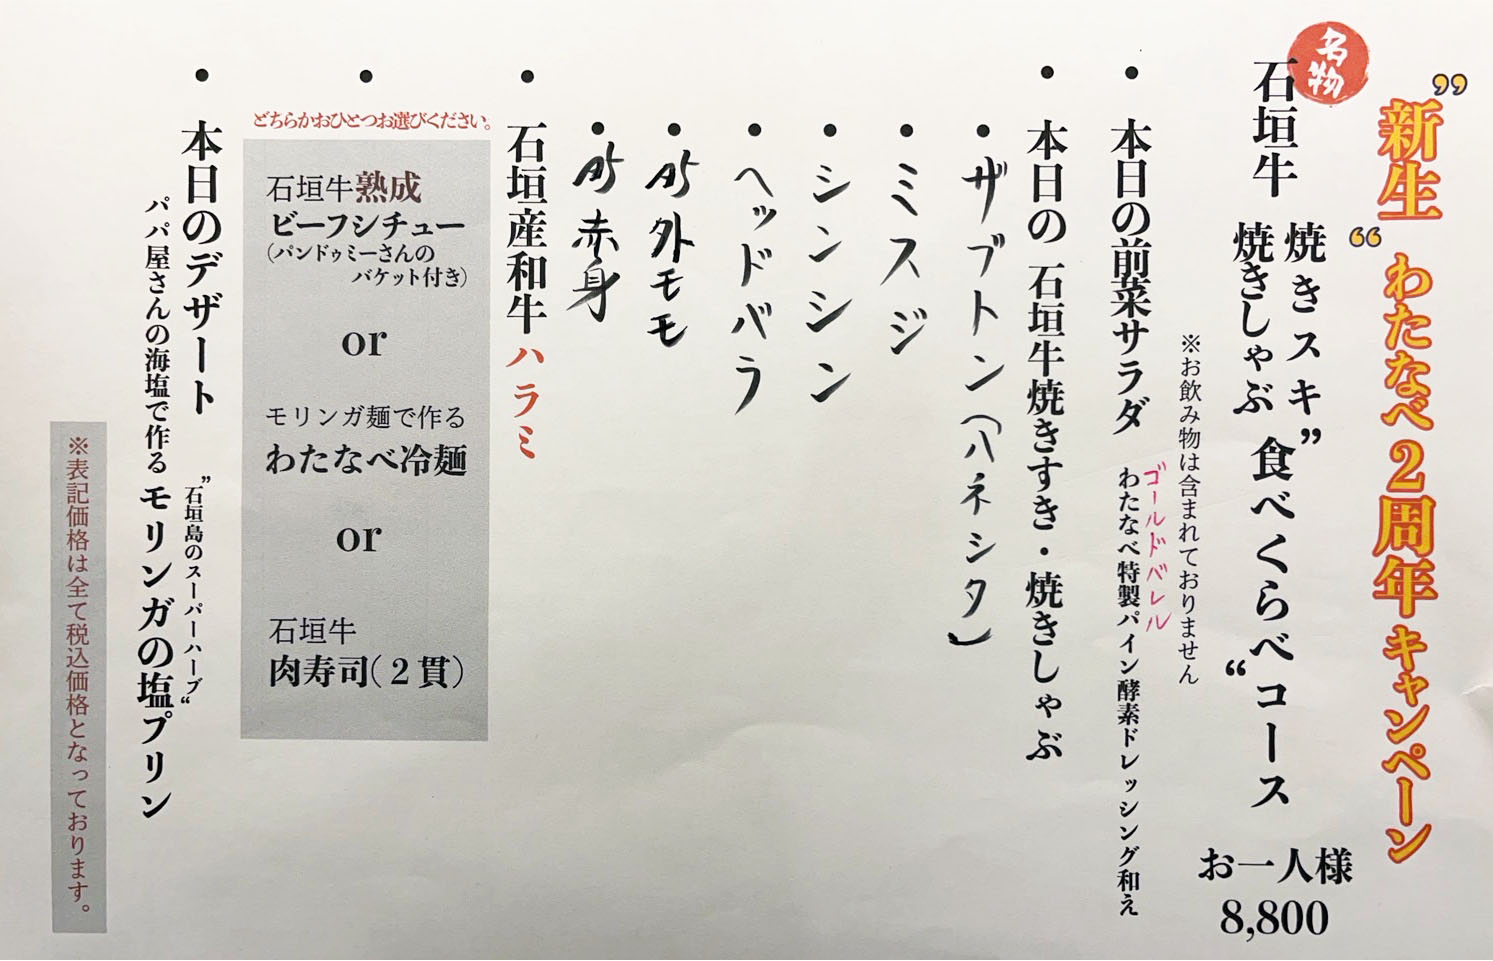 ”新生“わたなべ２周年キャンペーン
名物
石垣牛 焼きスキ”食べくらべコース
焼きしゃぶ“
お一人様
8,800
※お飲み物は含まれておりません
・本日の前菜サラダ わたなべ特製パイン酵素ドレッシング和え
ゴールドバレル
・本日の 石垣牛焼きすき・焼きしゃぶ
・ザブトン(ハネシタ)
・ミスジ
・シンシン
・ヘッドバラ
・外モモ
・赤身
・石垣産和牛ハラミ
・
どちらかおひとつお選びください。
石垣牛熟成
ビーフシチュー
(パンドゥミーさんの
バケット付き)
or
モリンガ麺で作る
わたなべ冷麺
or
石垣牛
肉寿司(２貫)
・本日のデザート
”石垣島のスーパーハーブ“
パパ屋さんの海塩で作るモリンガの塩プリン
※表記価格は全て税込価格となっております。